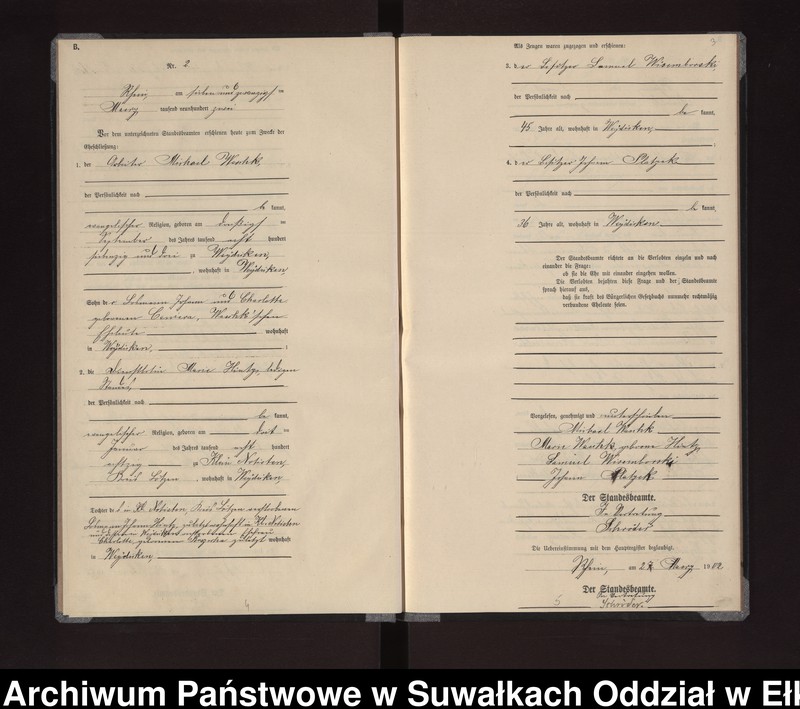 B.
Nr. 2
Rhein, am sieben und zwanzigsten
Maerz tausend neunhundert zwei
Vor dem unterzeichneten Standesbeamten erschienen heute zum Zwecke der
Eheschließung:
1. der Arbeiter Michael Wentek,
der Persönlichkeit nach
be kannt,
evangelischer Religion, geboren am dreißigsten
September des Jahres tausend acht hundert
siebenzig und drei zu Weydicken,
, wohnhaft in Weydicken
Sohn der Johann und Charlotte
geborenen
Eheleute wohnhaft
in Weydicken, ;
2. die Marie Hintz, ledigen
Standes,
der Persönlichkeit nach
be kannt,
evangelischer Religion, geboren am
Januar des Jahres tausend acht hundert
achtzig zu Klein Notisten,
Kreis Lötzen, wohnhaft in Weydicken
Tochter des in Kl. Notisten, Kreis Lötzen verstorbenen
Johann Hintz, zuletzt wohnhaft in Kl. Notisten
und
Charlotte, geborenen zuletzt wohnhaft
in Weydicken,
4
3
Als Zeugen waren zugezogen und erschienen:
3. der Besitzer Samuel
der Persönlichkeit nach
be kannt,
45 Jahre alt, wohnhaft in Weydicken, ;
4. der Besitzer Johann Platzek
der Persönlichkeit nach
be kannt,
36 Jahre alt, wohnhaft in Weydicken.
Der Standesbeamte richtete an die Verlobten einzeln und nach
einander die Frage:
ob sie die Ehe mit einander eingehen wollen.
Die Verlobten bejahten diese Frage und der Standesbeamte
sprach hierauf aus,
daß sie kraft des Bürgerlichen Gesetzbuchs nunmehr rechtmäßig
verbundene Eheleute seien.
Vorgelesen, genehmigt und unterschrieben
Michael Wentek
Marie Wentek, geborene Hintz,
Samuel
Johann Platzek
Der Standesbeamte.
In Vertretung
Schröder
Die Uebereinstimmung mit dem Hauptregister beglaubigt.
Rhein, am 27 Maerz 1902
Der Standesbeamte.
In Vertretung
Schröder.
5
Archiwum Państwowe w Suwałkach Oddział w Ełk